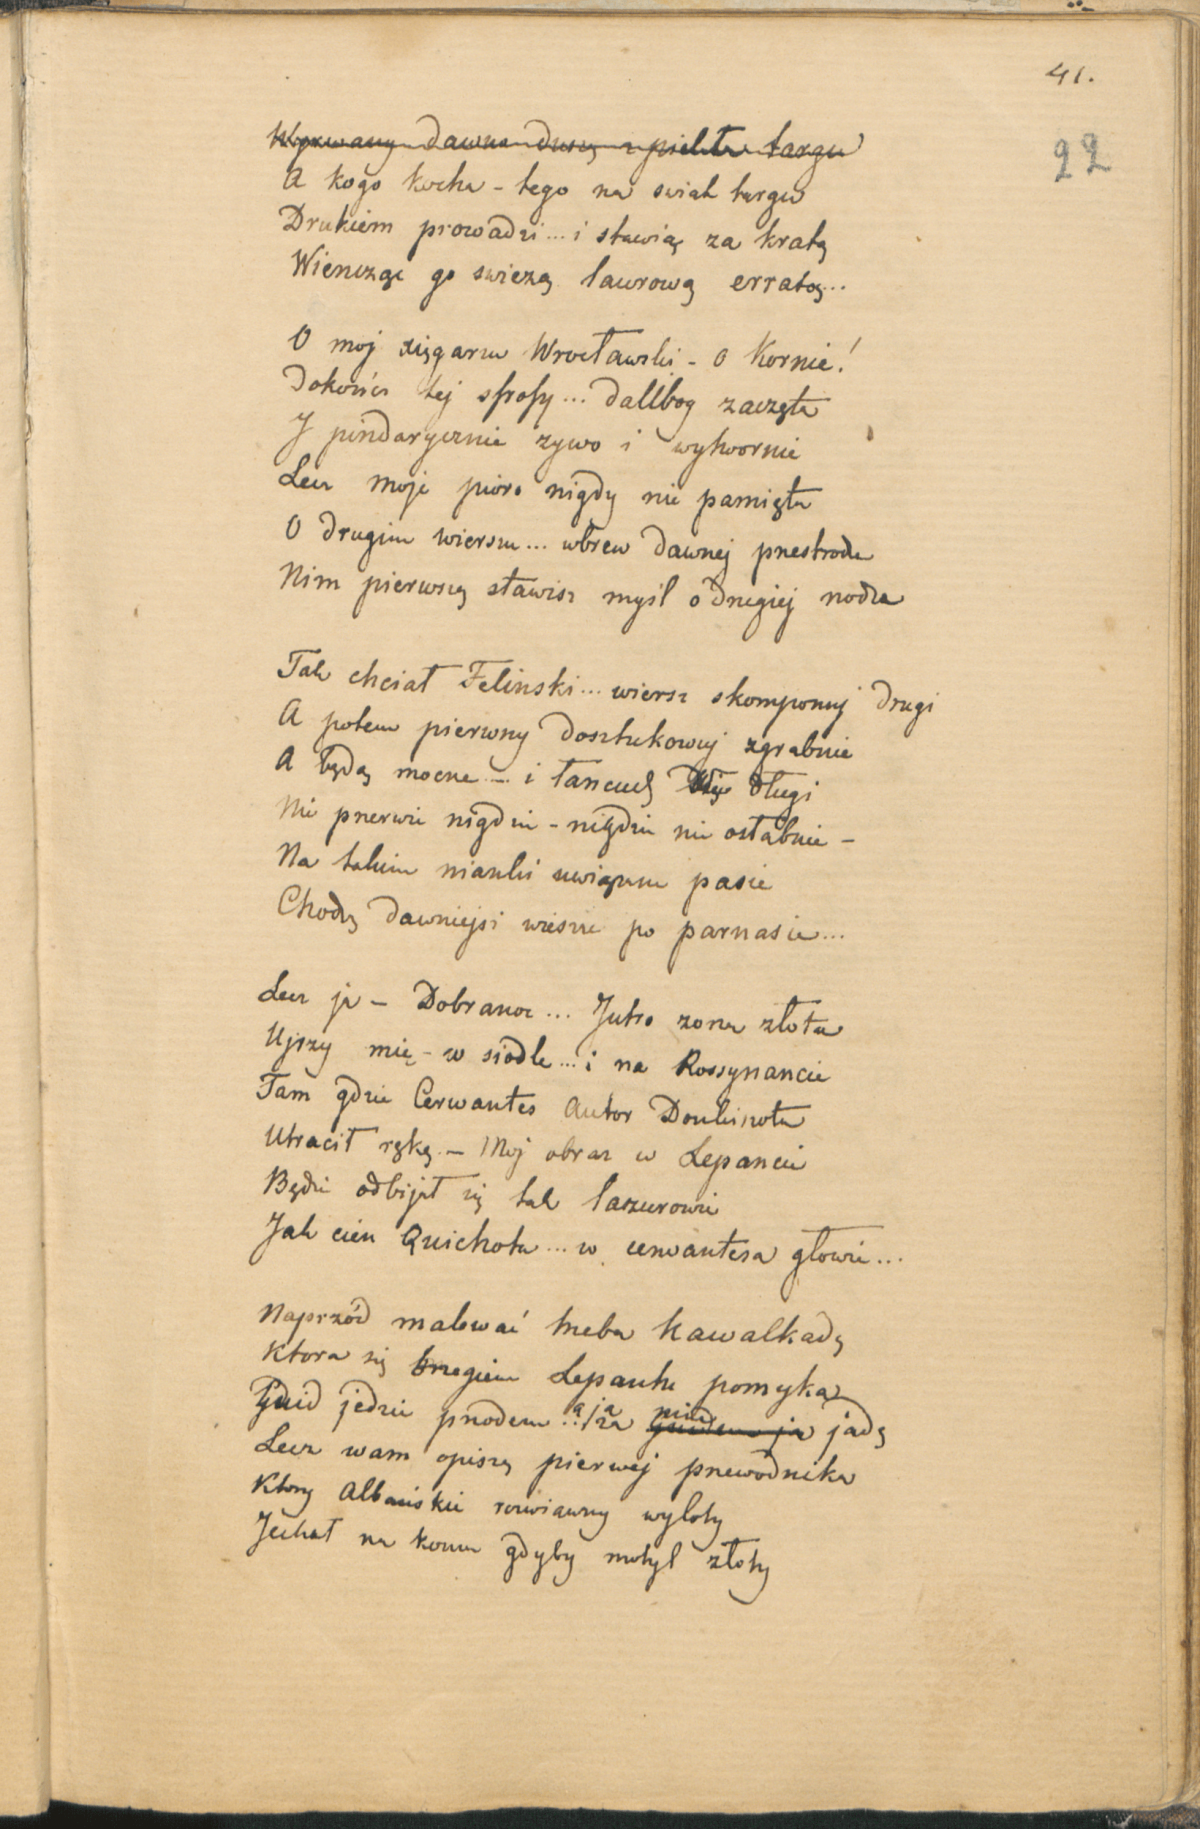 41.
22
Wyrwany dawno duszą z piekła targu
A kogo kocha - tego na swiat targu
Drukiem prowadzi... i stawią za kratą
Wieńcząc go swieżą laurową erratą...
O moj xięgarzu Wrocławski - O Kornie!
Dokończ tej strofy... dallbog zaczęta
I pindarycznie żywo i wytwornie
Lecz moje pioro nigdy nie pamięta
O drugim wierszu... wbrew dawnej przestrodze
Nim pierwszą stawisz myśl o drugiej nodze
Tak chciał Felinski... wiersz skomponuj drugi
A potem pierwszy dosztukowuj zgrabnie
A będą mocne - i łancuch długi
Nie przerwie nigdzie - nigdzie nie osłabnie -
Na takim nianki uwiązani pasie
Chodzą dawniejsi wieszcze po parnasie...
Lecz ja - Dobranoc... Jutro zorza złota
Ujrzy mię - w siodle... i na Rossynancie
Tam gdzie Cerwantes Autor Donkiszota
Utracił rękę - Moj obraz w Lepancie
Będzie odbijał się tak lazurowie
Jak cień Quichota... w cerwantesa głowie...
Naprzód malować trzeba kawalkadę
Ktora się brzegiem Lepantu pomyka
Gwid jedzie przodem... a ja za nim jadę
Lecz wam opiszę pierwej przewodnika
Ktory Albańskie rozwiawszy wyloty
Jechał na koniu gdyby motyl złoty